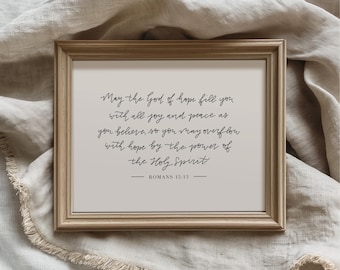 May the God of hope fill you
with all joy and peace as
you believe, so you may overflow
with hope by the power of
the Holy Spirit
ROMANS 15:13